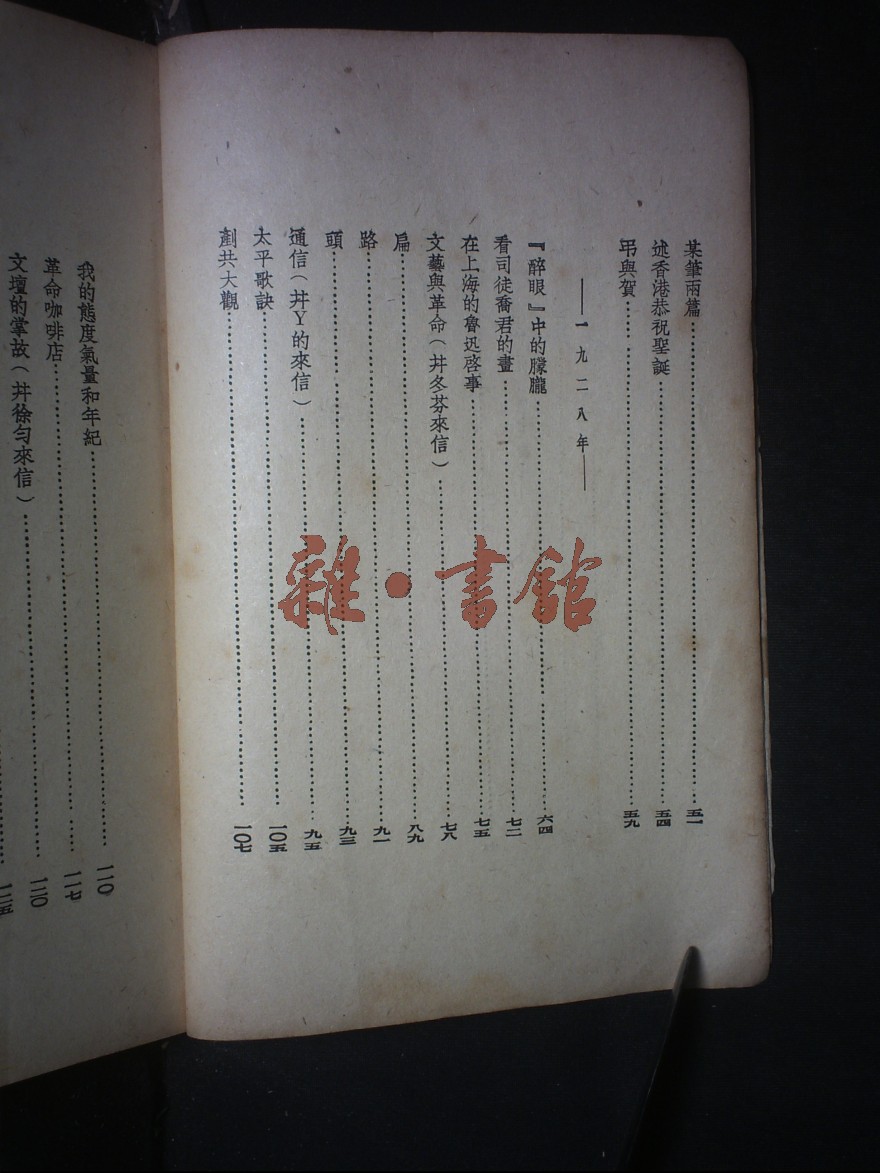 某筆兩篇……五一
述香港恭祝聖誕……五四
弔與賀……五九
——一九二八年——
『醉眼』中的朦朧……六四
看司徒喬君的畫……七二
在上海的魯迅啓事……七五
文藝與革命(并冬芬來信)……七八
扁……八九
路……九一
頭……九三
通信(并Y的來信)……九五
太平歌訣……一〇五
剷共大觀……一〇七
我的態度氣量和年紀……一一〇
革命咖啡店……一一七
文壇的掌故(并徐匀來信)……一二〇
……一二五
雜·書館